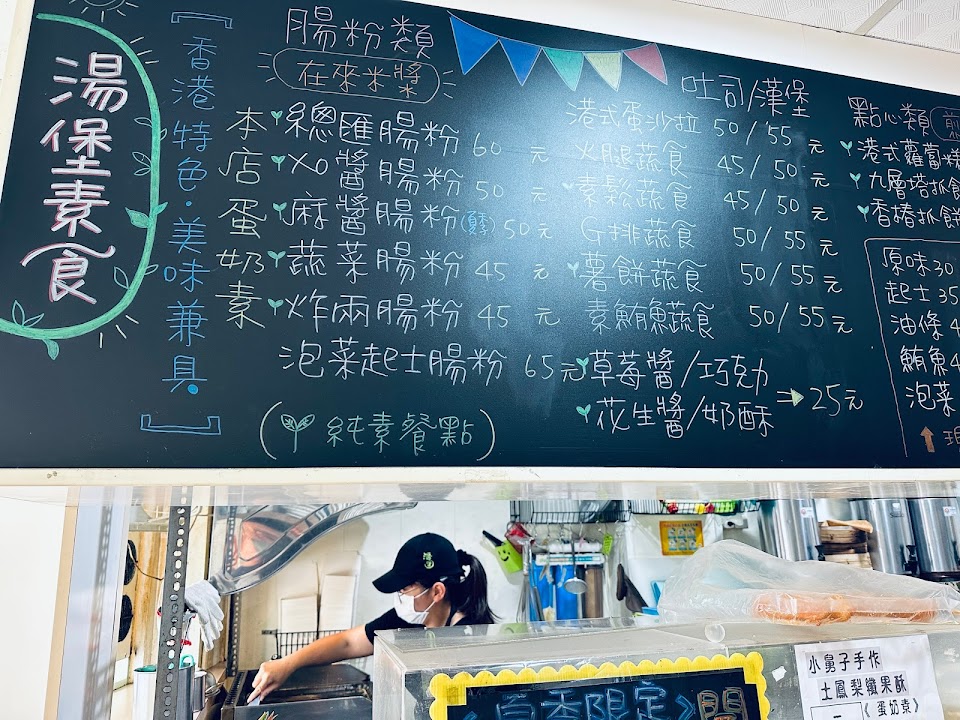 湯堡素食
[香港特色·美味兼具]
本店蛋奶素
腸粉類
在來米漿
總匯腸粉 60元
XO醬腸粉 50元
麻醬腸粉 50元
蔬菜腸粉 45元
炸兩腸粉 45元
泡菜起士腸粉 65元
(純素餐點)
吐司/漢堡
港式蛋沙拉 50/55元
火腿蔬食 45/50元
素鬆蔬食 45/50元
G排蔬食 50/55元
薯餅蔬食 50/55元
素鮪魚蔬食 50/55元
草莓醬/巧克力
花生醬/奶酥
25元
點心類
港式蘿蔔糕
九層塔抓餅
香椿抓餅
原味30
起士35
油條4
鮪魚4
泡菜
小舅子手作
土鳳梨纖果酥
《蛋奶素》